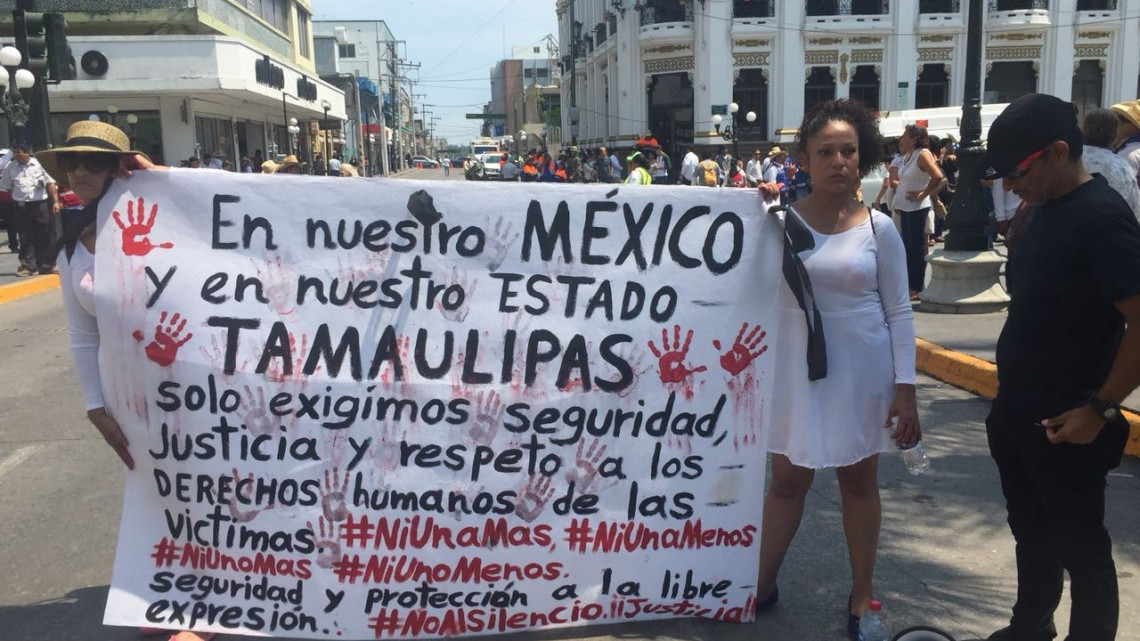 En nuestro MÉXICO
y en nuestro ESTADO
TAMAULIPAS
solo exigímos seguridad,
Justicia y respeto a los
DERECHOS humanos de las
victimas. #NiUnaMas, #NiUnaMenos
#NiUnoMas #NiUnoMenos.
seguridad y protección a la libre
expresión.. #NoAlSilencio.¡¡Justicia!!